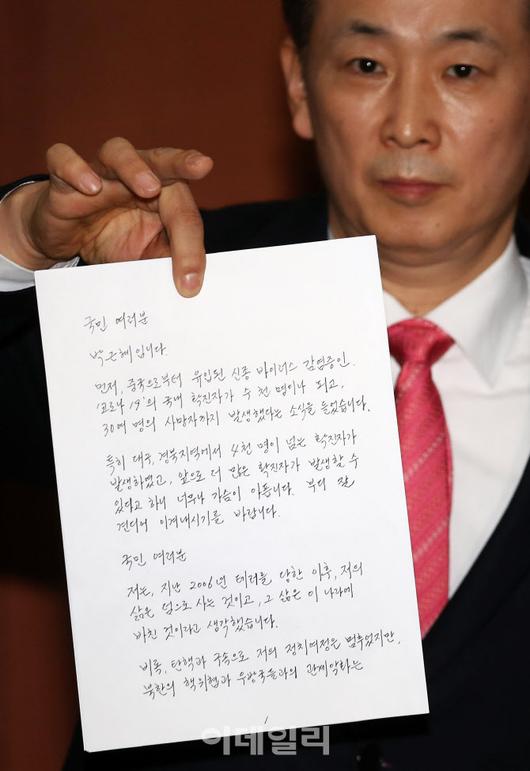 국민 여러분
박근혜입니다.
먼저, 중국으로부터 유입된 신종 바이러스 감염증인
'코로나 19'의 국내 확진자가 수 천 명이나 되고,
30여 명의 사망자까지 발생했다는 소식을 들었습니다.
특히 대구, 경북지역에서 4천 명이 넘는 확진자가
발생하였고, 앞으로 더 많은 확진자가 발생할 수
있다고 하니 너무나 가슴이 아픕니다. 부디 잘
견디어 이겨내시기를 바랍니다.
국민 여러분
저는, 지난 2006년 테러를 당한 이후, 저의
삶은 덤으로 사는 것이고, 그 삶은 이 나라에
바친 것이라고 생각했습니다.
비록, 탄핵과 구속으로 저의 정치여정은 멈추었지만,
북한의 핵위협과 우방국들과의 관계악화는
1
이데일리